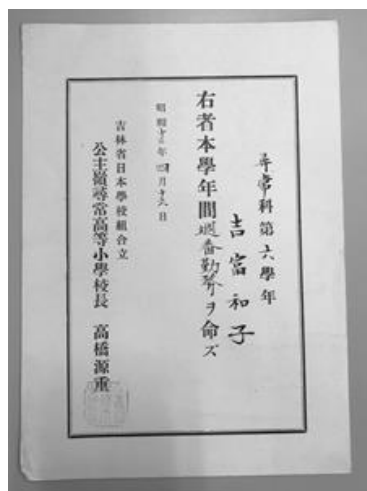 尋常科第六學年
吉富和子
右者本學年間週番勤務ヲ命ズ
昭和十三年四月十九日
吉林省日本學校組合立
公主嶺尋常高等小學校長 高橋源重